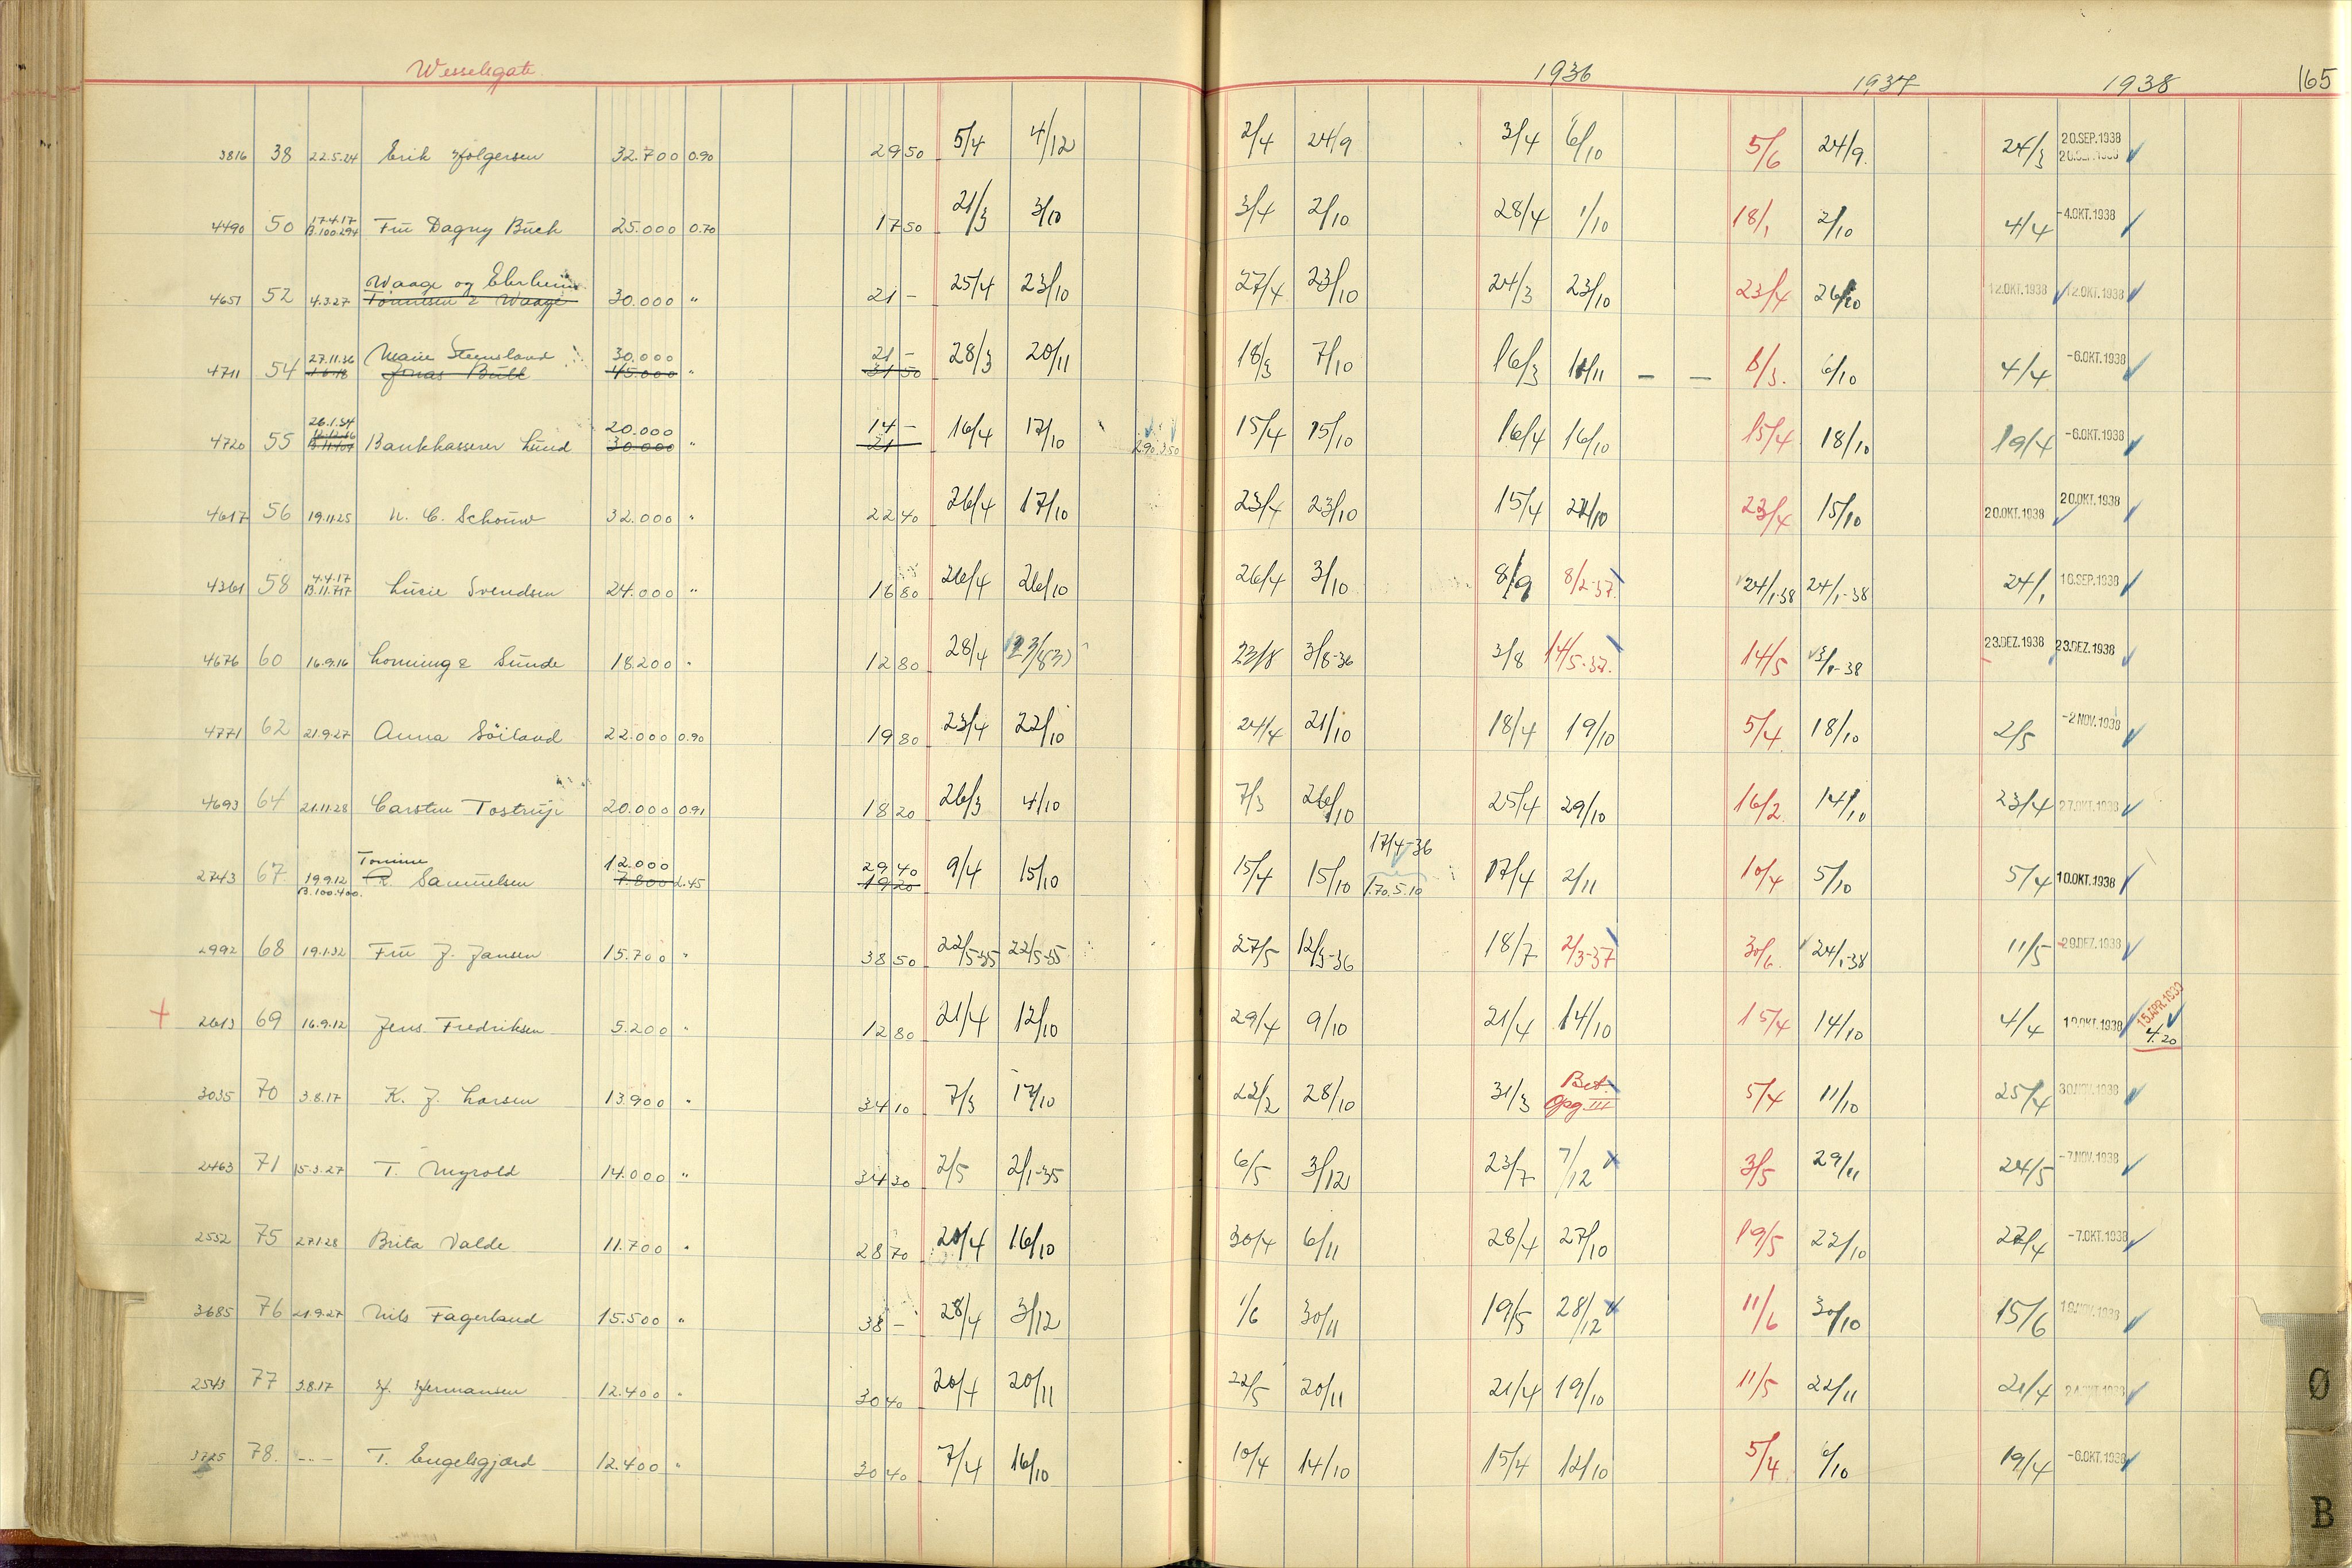 Wesselsgate 1936 1937 1938 165
3816 38 22.5.24 Erik Holgersen 32.700 0.90 29 50 5/4 4/12 2/4 24/9 3/4 6/10 5/6 24/9 24/3 20.SEP.1938
4490 50 17.4.17 B.100.294 Frü Dagny Büch 25.000 0.70 17 50 21/3 3/10 3/4 2/10 28/4 1/10 18/1 2/10 4/4 -4.OKT.1938
Waage og
4651 52 4.3.27 Tönnesen & Waage 30.000 " 21 - 25/4 23/10 27/4 23/10 24/3 23/10 23/4 26/10 12.OKT.1938 12.OKT.1938
27.11.36 Marie Steensland 30.000 21 -
4711 54 Jonas Büll 45.000 " 31 50 28/3 20/11 18/3 7/10 16/3 10/11 - - 8/3. 6/10 4/4 -6.OKT.1938
26.1.34 20.000 14 -
4720 55 Bankkasserer Lünd 30.000 " 21 16/4 17/10 2.90 3.50 15/4 15/10 16/4 16/10 15/4 18/10 19/4 -6.OKT.1938
4617 56 19.11.25 N. C. Schoüw 32.000 " 22 40 26/4 17/10 23/4 23/10 15/4 23/4 15/10 20.OKT.1938 20.OKT.1938
4361 58 4.4.17 B.11.717 Lücie Svendsen 24.000 " 16 80 26/4 26/10 26/4 3/10 8/9 8/2-37. 24/1-38 24/1-38 24/1 16.SEP.1938
4676 60 16.9.16 Lonning & Sünde 18.200 " 12 80 28/4 23/8 3/8-36 3/8 14/5-37. 14/5 23.DEZ.1938 23.DEZ.1938
4771 62 21.9.27 Anna Söiland 22.000 0.90 19 80 23/4 22/10 24/4 21/10 18/4 19/10 5/4 18/10 2/5 -2 NOV.1938
4693 64 21.11.28 Carsten Tostrüp 20.000 0.91 18 20 26/3 4/10 7/3 26/10 25/4 29/10 16/2 14/10 23/4 27.OKT.1938
Tomine 12.000 29 40 17/4-36
2743 67 19.9.12 B.100.400. R. Samüelsen 7.800 2.45 19 20 9/4 15/10 15/4 15/10 1.70. 5.10 17/4 2/11 10/4 5/10 5/4 10.OKT.1938
2992 68 19.1.32 Frü J. Jansen 15.700 " 38 50 22/5-35 22/5-35 27/5 12/3-36 18/7 2/3-37 30/6. 24/1-38 11/5 29.DEZ.1938
+ 2613 69 16.9.12 Jens Fredriksen 5.200 " 12 80 21/4 12/10 29/4 9/10 21/4 14/10 15/4 14/10 4/4 10.OKT.1938 15.APR.1939 4.20
3035 70 3.8.17 K. J. Larsen 13.900 " 34 10 7/3 17/10 22/2 28/10 31/3 Bet. Opg III 5/4 11/10 25/4 30.NOV.1938
2463 71 15.3.27 T. Myrold 14.000 " 34 30 2/5 2/1-35 6/5 3/12 23/7 7/12 3/5 29/11 24/5 -7.NOV.1938
2552 75 27.1.28 Brita Valde 11.700 " 28 70 20/4 16/10 30/4 6/11 28/4 27/10 19/5 22/10 27/4 -7.OKT.1938
3685 76 21.9.27 Nils Fagerland 15.500 " 38 - 28/4 3/12 1/6 30/11 19/5 28/12 11/6 30/10 15/6
2543 77 3.8.17 H. Hermansen 12.400 " 30 40 20/4 20/11 22/5 20/11 21/4 19/10 11/5 22/11 21/4
3725 78. -..- T. Engelsgjærd 12.400 " 30 40 7/4 16/10 10/4 14/10 15/4 12/10 5/4 6/10 19/4 -6.OKT.1938
Ø
B